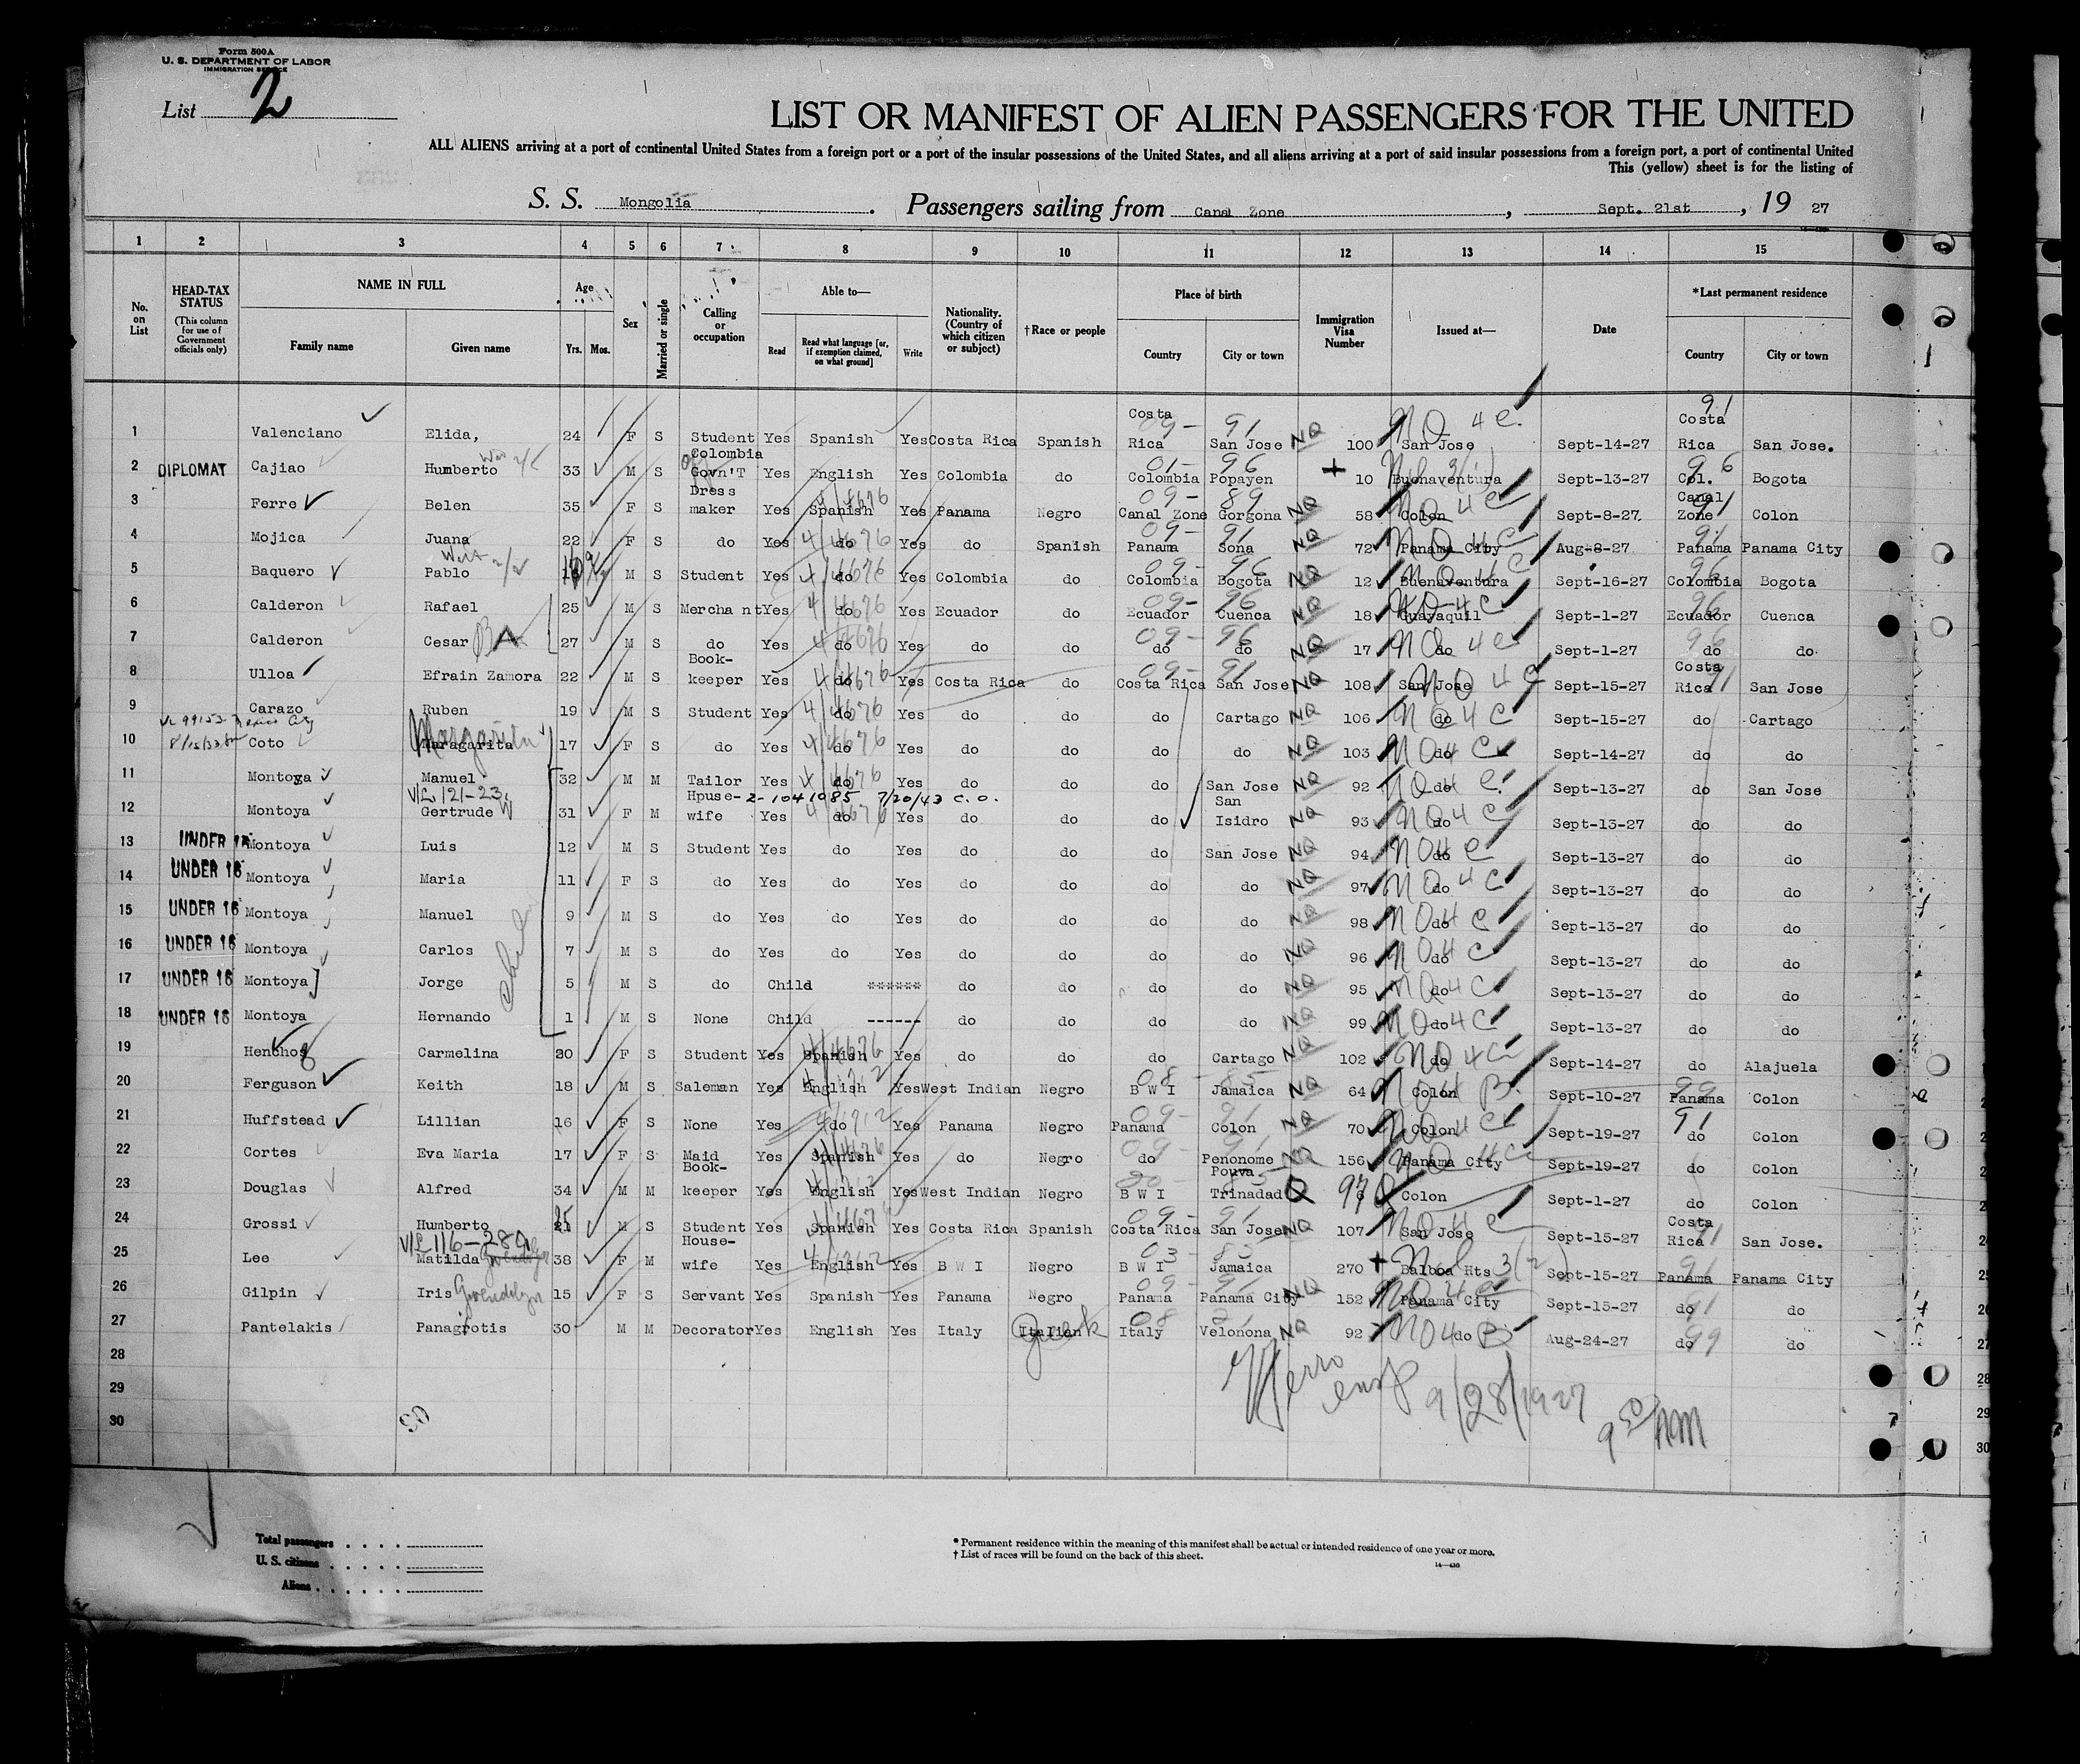 Form 500A
U. S. DEPARTMENT OF LABOR
IMMIGRATION SERVICE
List 2
LIST OR MANIFEST OF ALIEN PASSENGERS FOR THE UNITED
ALL ALIENS arriving at a port of continental United States from a foreign port or a port of the insular possessions of the United States, and all aliens arriving at a port of said insular possessions from a foreign port, a port of continental United
This (yellow) sheet is for the listing of
S. S. Mongolia. Passengers sailing from Canal Zone, Sept. 21st, 19 27
1 2 3 4 5 6 7 8 9 10 11 12 13 14 15
No. on List
HEAD-TAX STATUS (This column for use of Government officials only)
NAME IN FULL Family name Given name
Age Yrs. Mos.
Sex
Married or single
Calling or occupation
Able to— Read Read what language [or, if exemption claimed, on what ground] Write
Nationality. (Country of which citizen or subject)
†Race or people
Place of birth Country City or town
Immigration Visa Number
Issued at—
Date
*Last permanent residence Country City or town
1 Valenciano Elida, 24 F S Student Yes Spanish Yes Costa Rica Spanish Costa Rica San Jose NQ 100 San Jose Sept-14-27 Costa Rica San Jose.
2 DIPLOMAT Cajiao Humberto 33 M S Colombia Govn'T Yes English Yes Colombia do Colombia Popayen 10 Buenaventura Sept-13-27 Col. Bogota
3 Ferre Belen 35 F S Dress maker Yes Spanish Yes Panama Negro Canal Zone Gorgona NQ 58 Colon Sept-8-27 Canal Zone Colon
4 Mojica Juana 22 F S do Yes do Yes do Spanish Panama Sona NQ 72 Panama City Aug-8-27 Panama Panama City
5 Baquero Pablo M S Student Yes do Yes Colombia do Colombia Bogota NQ 12 Buenaventura Sept-16-27 Colombia Bogota
6 Calderon Rafael 25 M S Mercha nt Yes do Yes Ecuador do Ecuador Cuenca NQ 18 Guayaquil Sept-1-27 Ecuador Cuenca
7 Calderon Cesar 27 M S do Yes do Yes do do do do NQ 17 do Sept-1-27 do do
8 Ulloa Efrain Zamora 22 M S Book-keeper Yes do Yes Costa Rica do Costa Rica San Jose NQ 108 San Jose Sept-15-27 Costa Rica San Jose
9 Carazo Ruben 19 M S Student Yes do Yes do do do Cartago NQ 106 do Sept-15-27 do Cartago
10 Coto Maragarita Margarita 17 F S do Yes do Yes do do do do NQ 103 do Sept-14-27 do do
11 Montoya Manuel 32 M M Tailor Yes do Yes do do do San Jose NQ 92 do Sept-13-27 do San Jose
V/L 121-23 2-1041085 7/20/43 C.O.
12 Montoya Gertrude 31 F M Hpuse-wife Yes do Yes do do do San Isidro NQ 93 do Sept-13-27 do do
13 UNDER 16 Montoya Luis 12 M S Student Yes do Yes do do do San Jose NQ 94 do Sept-13-27 do do
14 UNDER 16 Montoya Maria 11 F S do Yes do Yes do do do do NQ 97 do Sept-13-27 do do
15 UNDER 16 Montoya Manuel 9 M S do Yes do Yes do do do do NQ 98 do Sept-13-27 do do
16 UNDER 16 Montoya Carlos 7 M S do Yes do Yes do do do do NQ 96 do Sept-13-27 do do
17 UNDER 16 Montoya Jorge 5 M S do Child ****** do do do do NQ 95 do Sept-13-27 do do
18 UNDER 16 Montoya Hernando 1 M S None Child ------ do do do do NQ 99 do Sept-13-27 do do
19 Carmelina 20 F S Student Yes Spanish Yes do do do Cartago NQ 102 do Sept-14-27 do Alajuela
20 Ferguson Keith 18 M S Saleman Yes English Yes West Indian Negro B W I Jamaica NQ 64 Colon Sept-10-27 Panama Colon
21 Huffstead Lillian 16 F S None Yes do Yes Panama Negro Panama Colon NQ 70 Colon Sept-19-27 do Colon
22 Cortes Eva Maria 17 F S Maid Yes Spanish Yes do Negro do Penonome NQ 156 Panama City Sept-19-27 do Colon
23 Douglas Alfred 34 M M Book-keeper Yes English Yes West Indian Negro B W I Pouva Trinadad Q Colon Sept-1-27 do Colon
24 Grossi Humberto M S Student Yes Spanish Yes Costa Rica Spanish Costa Rica San Jose NQ 107 San Jose Sept-15-27 Costa Rica San Jose.
V/L 116-289
25 Lee Matilda 38 F M House-wife Yes English Yes B W I Negro B W I Jamaica 270 Balboa Hts Sept-15-27 Panama Panama City
26 Gilpin Iris Gwendolyn 15 F S Servant Yes Spanish Yes Panama Negro Panama Panama City NQ 152 Panama City Sept-15-27 do do
27 Pantelakis Panagrotis 30 M M Decorator Yes English Yes Italy Italian Greek Italy Velonona NQ 92 do Aug-24-27 do do
28
29
30
9/28/1927
9 30 AM
Total passengers
U. S. citizens
Aliens
* Permanent residence within the meaning of this manifest shall be actual or intended residence of one year or more.
† List of races will be found on the back of this sheet.